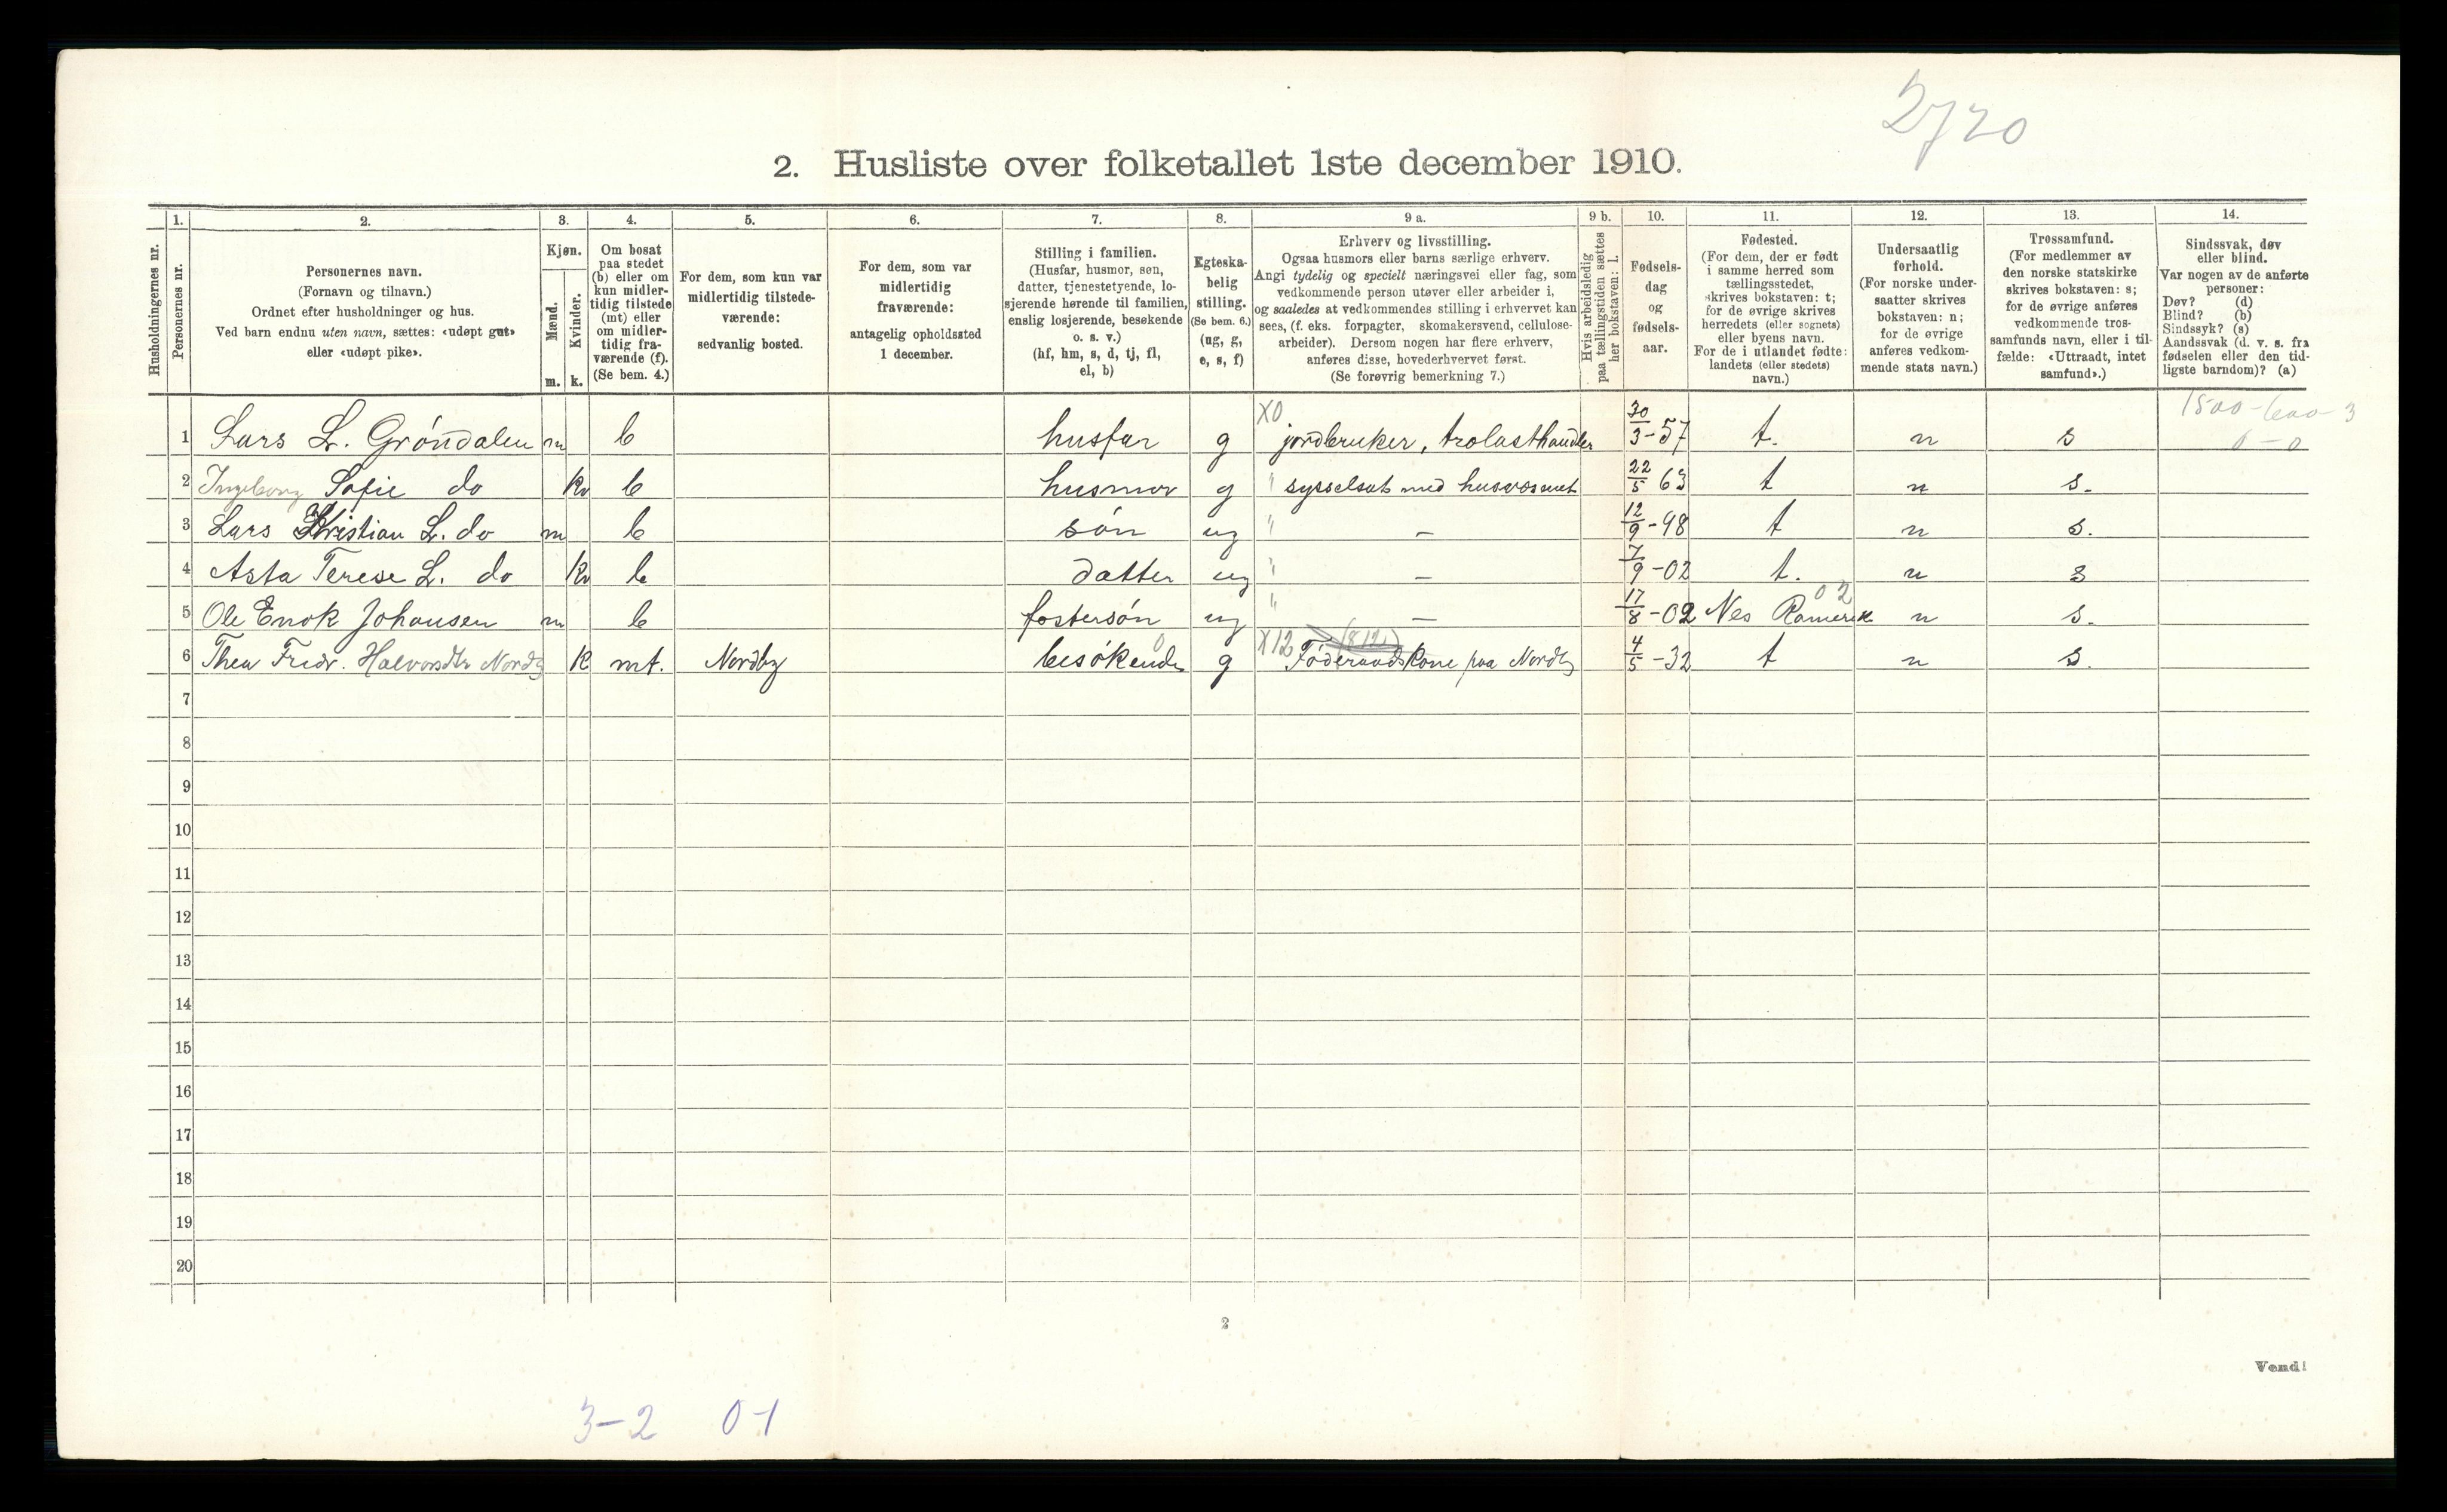 2720
2. Husliste over folketallet 1ste december 1910.
Husholdningernes nr.
1. Personernes nr.
2. Personernes navn.
(Fornavn og tilnavn.)
Ordnet efter husholdninger og hus.
Ved barn endnu uten navn, sættes: «udøpt gut»
eller «udøpt pike».
3. Kjøn.
Mænd. m.
Kvinder. k.
4. Om bosat
paa stedet
(b) eller om
kun midler-
tidig tilstede
(mt) eller
om midler-
tidig fra-
værende (f).
(Se bem. 4.)
5. For dem, som kun var
midlertidig tilstede-
værende:
sedvanlig bosted.
6. For dem, som var
midlertidig
fraværende:
antagelig opholdssted
1 december.
7. Stilling i familien.
(Husfar, husmor, søn,
datter, tjenestetyende, lo-
sjerende hørende til familien,
enslig losjerende, besøkende
o. s. v.)
(hf, hm, s, d, tj, fl,
el, b)
8. Egteska-
belig
stilling.
(Se bem. 6.)
(ug, g,
e, s, f)
9 a. Erhverv og livsstilling.
Ogsaa husmors eller barns særlige erhverv.
Angi tydelig og specielt næringsvei eller fag, som
vedkommende person utøver eller arbeider i,
og saaledes at vedkommendes stilling i erhvervet kan
sees, (f. eks. forpagter, skomakersvend, cellulose-
arbeider). Dersom nogen har flere erhverv,
anføres disse, hovederhvervet først.
(Se forøvrig bemerkning 7.)
9 b. Hvis arbeidsledig
paa tællingstiden sættes
her bokstaven: l.
10. Fødsels-
dag
og
fødsels-
aar.
11. Fødested.
(For dem, der er født
i samme herred som
tællingsstedet,
skrives bokstaven: t;
for de øvrige skrives
herredets (eller sognets)
eller byens navn.
For de i utlandet fødte:
landets (eller stedets)
navn.)
12. Undersaatlig
forhold.
(For norske under-
saatter skrives
bokstaven: n;
for de øvrige
anføres vedkom-
mende stats navn.)
13. Trossamfund.
(For medlemmer av
den norske statskirke
skrives bokstaven: s;
for de øvrige anføres
vedkommende tros-
samfunds navn, eller i til-
fælde: «Uttraadt, intet
samfund».)
14. Sindssvak, døv
eller blind.
Var nogen av de anførte
personer:
Døv? (d)
Blind? (b)
Sindssyk? (s)
Aandssvak (d. v. s. fra
fødselen eller den tid-
ligste barndom)? (a)
1500-600-3
0-0
1 Lars L. Gröndalen m b husfar g X0 jordbruker, trælasthandler 30/3-57 t. n s
2 Ingeborg Sofie do k b husmor g " sysselsat med husvæsenet 22/5 63 t n s.
3 Lars Kristian L. do m b sön ug " - 12/9-98 t n s.
4 Asta Terese L. do k b datter ug " - 7/9-02 t. n s
5 Ole Enok Johansen m b fostersön ug " - 17/8-02 Nes Romerik 02 n s.
6 Thea Fredr. Halvorsdtr Nordby k mt. Nordby besökende 0 g X12 Föderaadskone paa Nordby 4/5-32 t n s.
7
8
9
10
11
12
13
14
15
16
17
18
19
20
2
Vend!
3-2 0-1